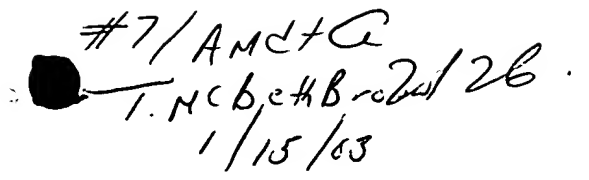 #7/Amdt A
1. McbethBrown 26.
1/15/03